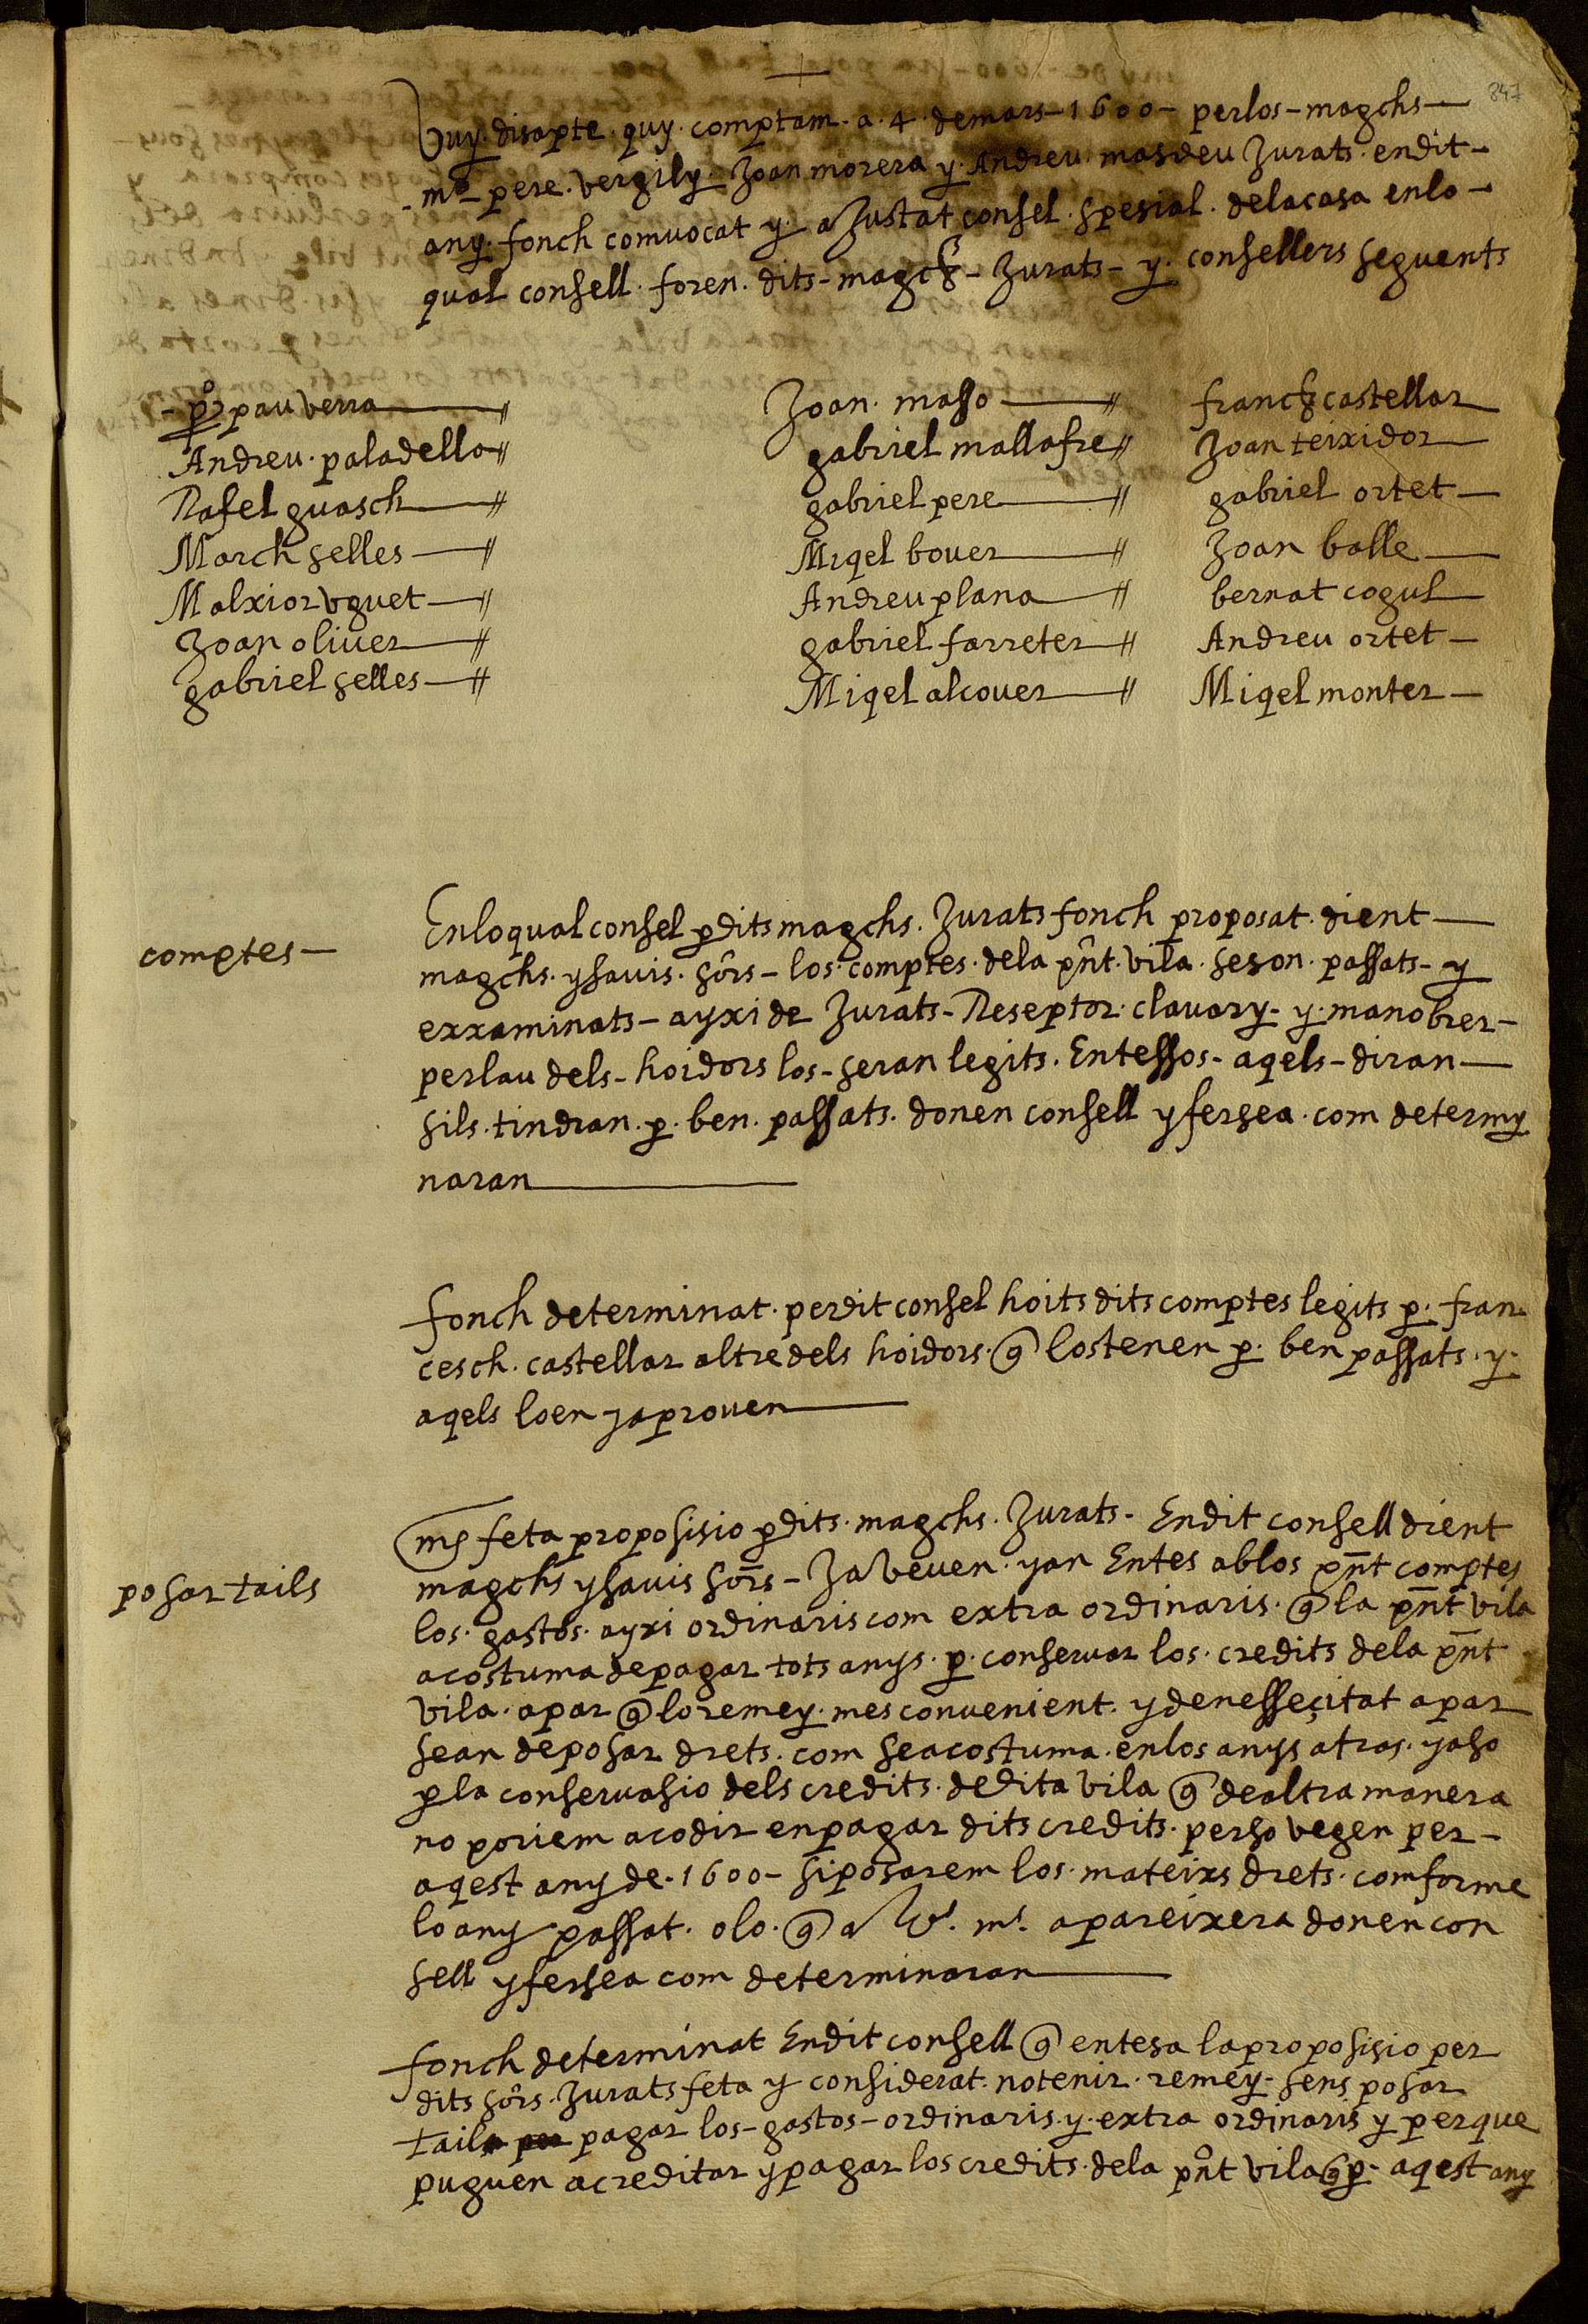 847
Vuy. disapte. quy. comptam. a. 4. demars - 1600 - perlos - magchs -
- mº - pere. vergily. Joan morera y. Andreu masdeu Jurats. endit -
any. fonch comvocat y. aJustat consel. spesial. delacasa enlo -
qual consell. foren. dits - magchs - Jurats - y. consellers seguents
- pº pau verra
Andreu. paladella
Rafel guasch
March selles
Malxior uguet
Joan oliver
gabriel selles
Joan. masso
gabriel mallafre
gabriel pere
Miqel bover
Andreu plana
gabriel farreter
Miqel alcover
franch castellar
Joan teixidor
gabriel ortet
Joan balle
bernat cogul
Andreu ortet
Miqel monter
comptes -
Enloqual consel p dits magchs. Jurats fonch proposat. dient
magchs. ysavis. sôrs - los. comptes. dela pñt. vila. seson. passats - y
exxaminats - ayxi de Jurats - Reseptor. clavary. y. manobrer -
perlau dels - hoidors los - seran legits. Entessos - aqels - diran
sils. tindran. p. ben. passats. donen consell yfersea. com determy
naran
fonch determinat. perdit consel hoits dits comptes legits p. fran
cesch. castellar altre dels hoidors. q lostenen p. ben passats. y.
aqels loen yaproven
posar tails
ms feta proposisio p dits. magchs. Jurats - Endit consell dient
magchs ysavis sors - Ja veuen. yan Entes ablos pnt comptes
los. gastos. ayxi ordinaris com extra ordinaris. q la pnt vila
acostuma depagar tots anys. p. conservar los. credits dela pnt
vila. apar q loremey. mes convenient. ydenesseçitat apar
sean deposar drets. com seacostuma. enlos anys atras. yaso
p la conservasio dels credits. dedita vila q dealtra manera
no poriem acodir enpagar dits credits. perso vegen per -
aqest any de - 1600 - siposarem los. mateixs drets. comforme
loany passat. olo. q a Vs. ms. apareixera donen con
sell yfersea com determinaran
fonch determinat Endit consell q entesa laproposisio per
dits sôrs. Jurats feta y considerat. notenir. remey - sens posar
tails pagar los - gastos - ordinaris. y. extra ordinaris y perque
puguen acreditar ypagar los credits. dela pnt vila q p. aqest any